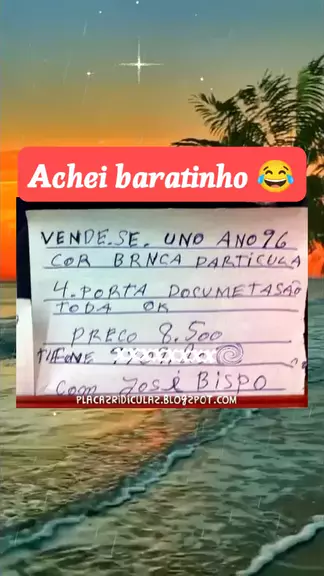 Achei baratinho 😂
VENDE.SE. UNO ANO 96
COR BRNCA PARTICULA
4.PORTA DOCUMETASÃO
TODA OK
PRECO 8.500
com José BISPO
PLACAZRIDICULAZ.BLOGZPOT.COM